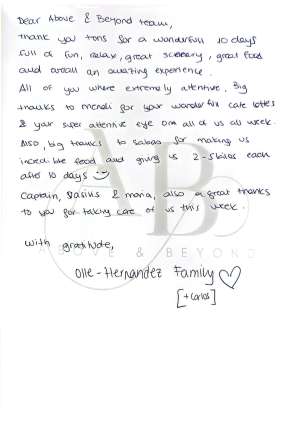 Dear Above & Beyond team,
thank you tons for a wonderfull 10 days
full of fun, relax, great scenery, great food
and overall an amazing experience.
All of you where extremely attentive, Big
thanks to mendi for your wonderfull cafe lattes
& your super attentive eye on all of us all week.
Also, big thanks to for making us
incredible food and giving us 2-5 kilos each
after 10 days
Captain, & maria, also a great thanks
to you for taking care of us this week.
with gratitude,
AB
ABOVE & BEYOND
Olle-Hernandez Family
[+ Carlos]